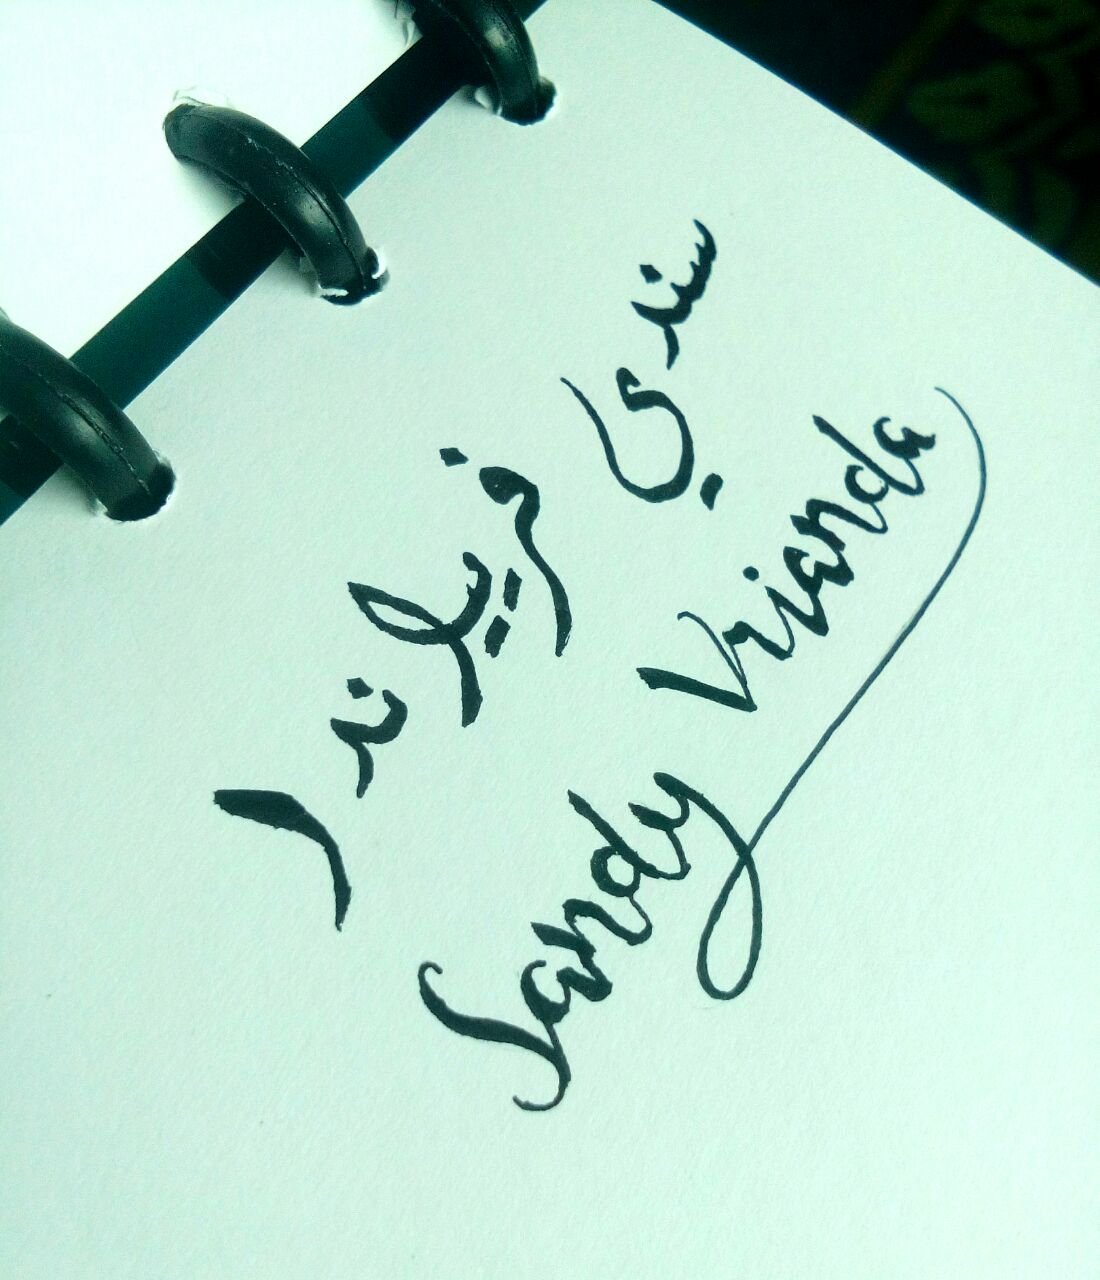 سندي فرياندا
Sandy Vrianda